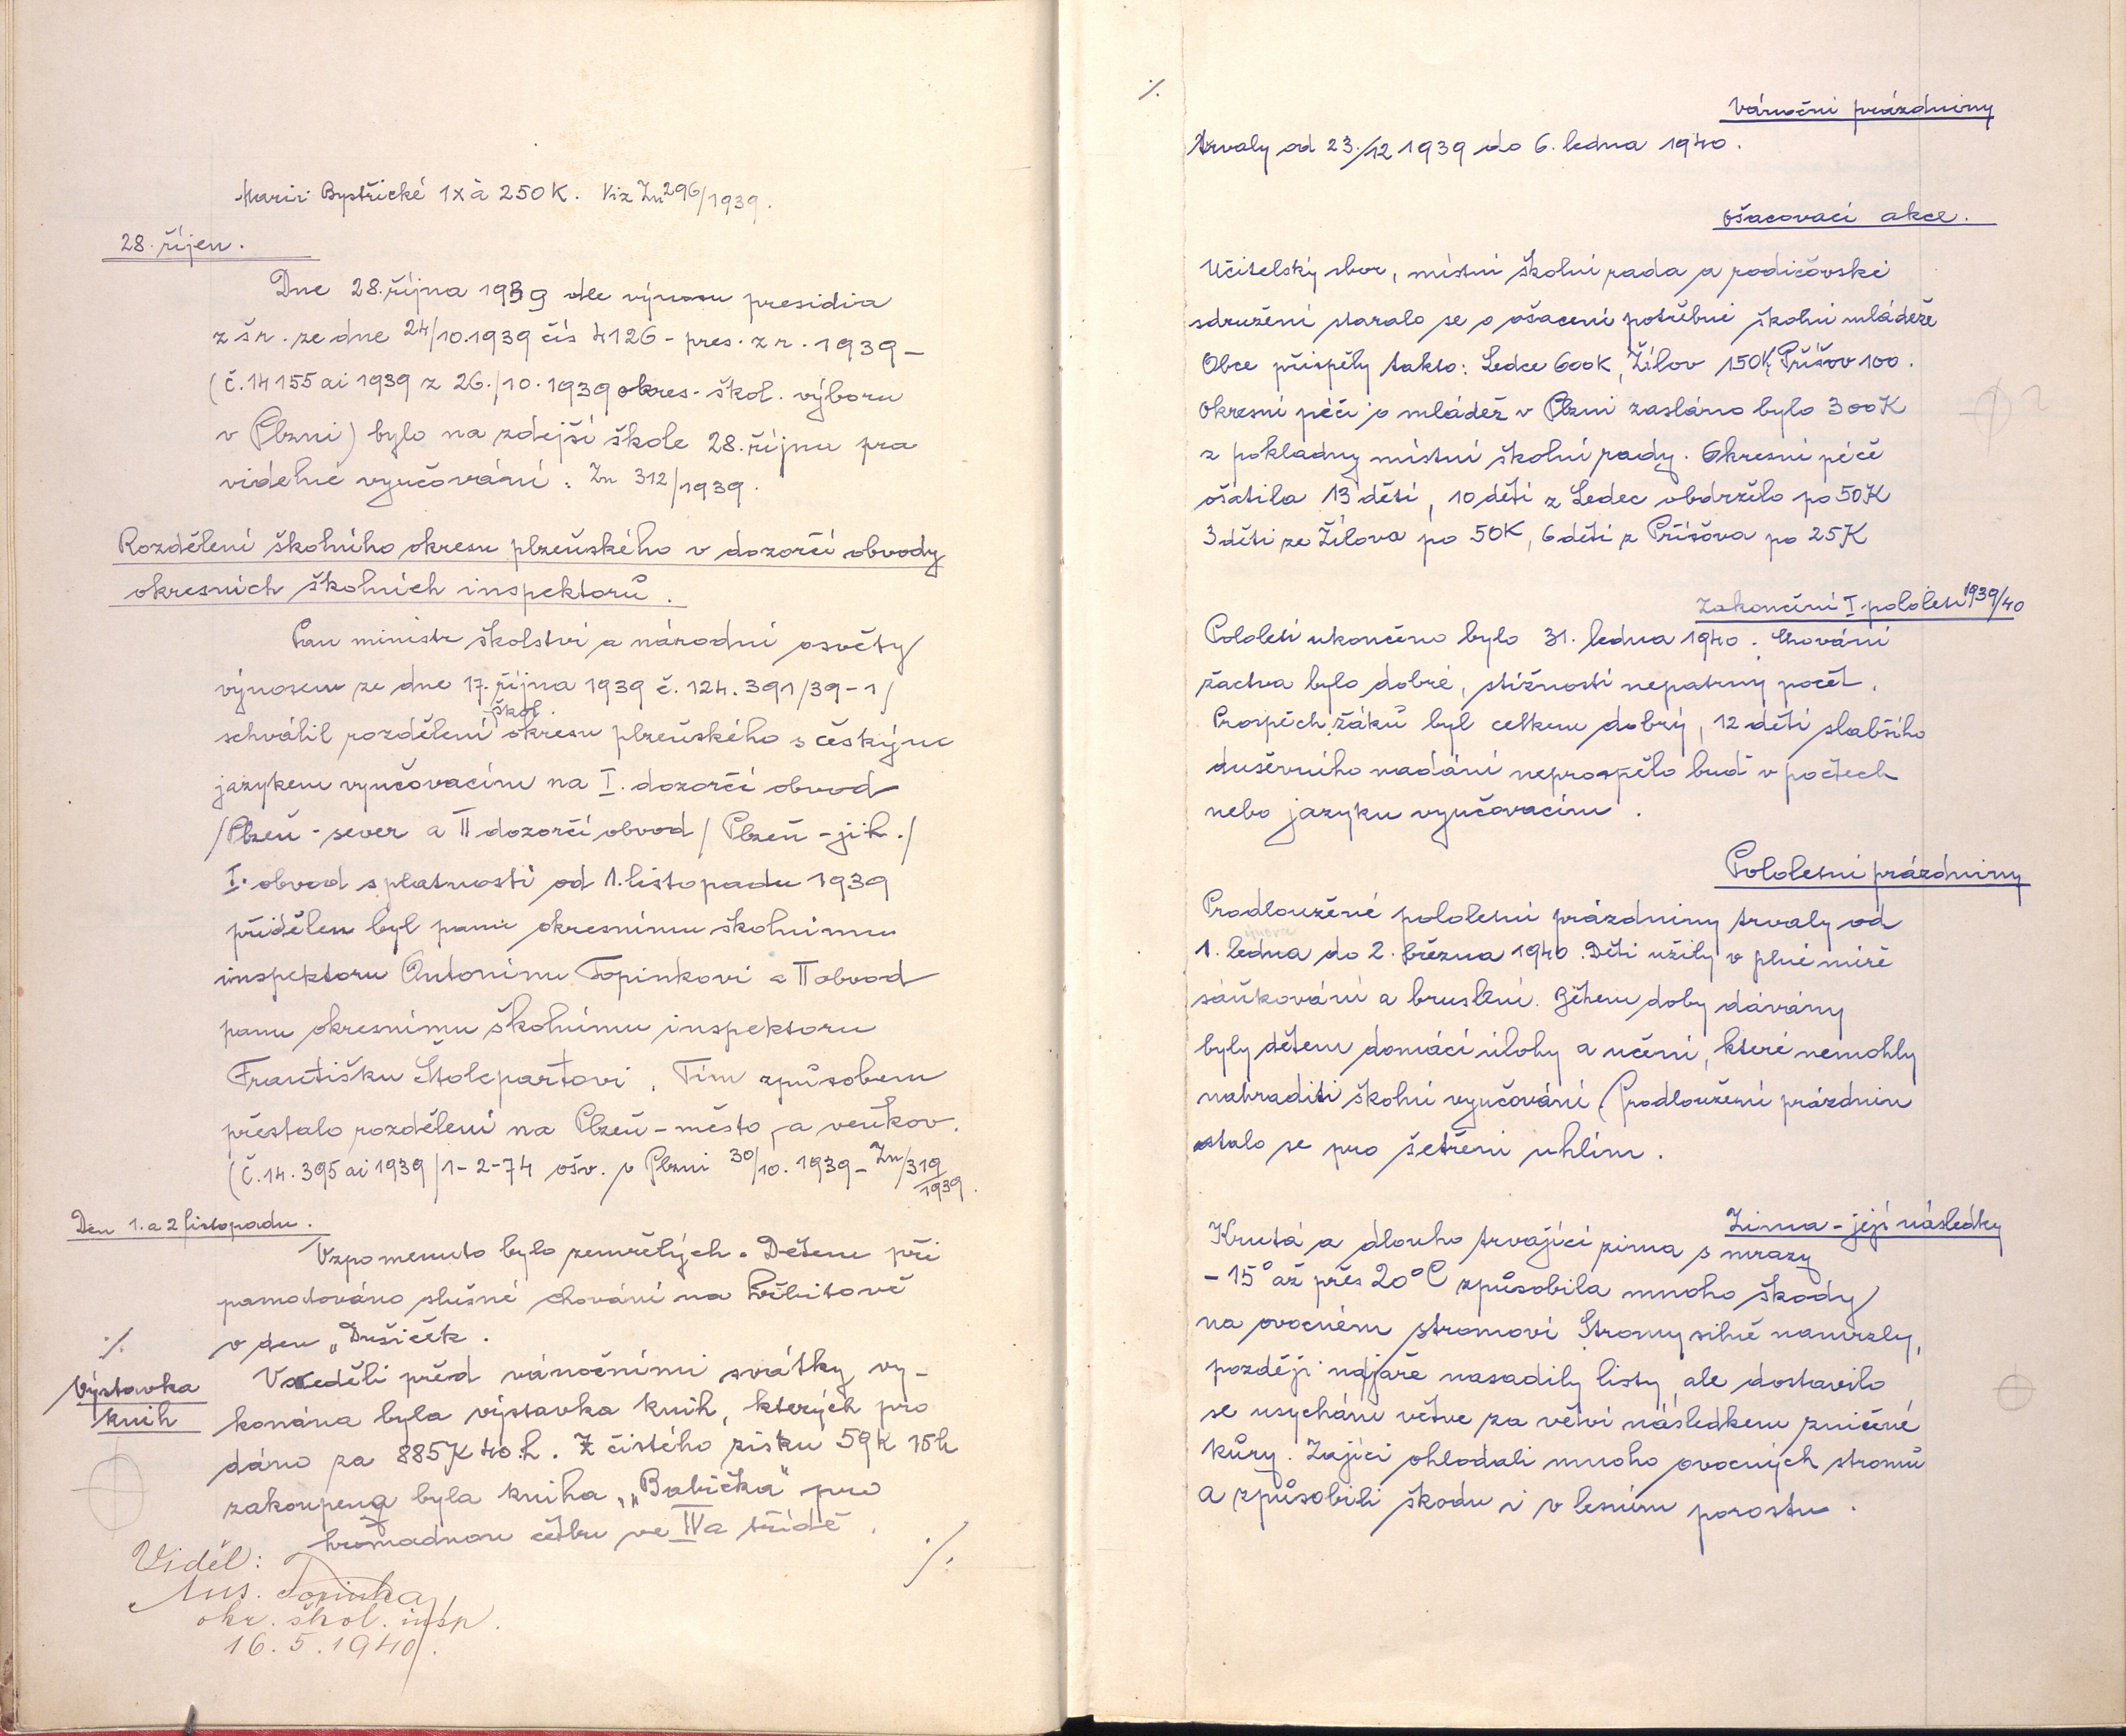 Marii Bystřické 1x à 250 K. Viz Zn 296/1939.
28. říjen.
Dne 28. října 1939 dle výnosu presidia
z š r. ze dne 24/10.1939 čís 4126 - pres. z r. 1939 -
(č. 14155 ai 1939 z 26./10. 1939 okres. škol. výboru
v Plzni) bylo na zdejší škole 28. říjnu pra
videlné vyučování. Zn 312/1939.
Rozdělení školního okresu plzeňského v dozorčí obvody
okresních školních inspektorů.
Pan ministr školství a národní osvěty
výnosem ze dne 17. října 1939 č. 124.391/39-1/
schválil rozdělení škol. okresu plzeňského s českým
jazykem vyučovacím na I. dozorčí obvod
/Plzeň - sever a II dozorčí obvod / Plzeň - jih./
I. obvod s platností od 1. listopadu 1939
přidělen byl panu okresnímu školnímu
inspektoru Antonínu Topinkovi a II obvod
panu okresnímu školnímu inspektoru
Františku Štolepartovi. Tím způsobem
přestalo rozdělení na Plzeň - město, a venkov.
(Č. 14.395 ai 1939/1-2-74 ošv. v Plzni 30/10. 1939 - Zn/319
1939.
Den 1. a 2 listopadu.
Vzpomenuto bylo zemřelých. Dětem při
pamatováno slušné chování na hřbitově
v den „Dušiček.
·/.
Výstavka
knih
V neděli před vánočními svátky vy-
konána byla výstavka knih, kterých pro
dáno za 885 K 40 h. Z čistého zisku 59 K 15 h
zakoupena byla kniha „Babička" pro
hromadnou četbu ve IVa třídě.
·/.
Viděl:
Ant. Topinka
okr. škol. insp.
16. 5. 1940.
·/.
Vánoční prázdniny
trvaly od 23./12 1939 do 6. ledna 1940.
Ošacovací akce.
Učitelský sbor, místní školní rada a rodičovské
sdružení staralo se o ošacení potřebné školní mládeže
Obce přispěly takto: Ledce 600 K, Žilov 150 K, Příšov 100.
Okresní péči o mládež v Plzni zasláno bylo 300 K
z pokladny místní školní rady. Okresní péče
ošatila 13 dětí, 10 dětí z Ledec obdrželo po 50 K
3 děti ze Žilova po 50 K, 6 dětí z Příšova po 25 K
Zakončení I. pololetí 1939/40
Pololetí ukončeno bylo 31. ledna 1940. Chování
žactva bylo dobré, stížností nepatrný počet.
Prospěch žáků byl celkem dobrý, 12 dětí slabšího
duševního nadání neprospělo buď v počtech
nebo jazyku vyučovacím.
Pololetní prázdniny
Prodloužené pololetní prázdniny trvaly od
února
1. ledna do 2. března 1940. Děti užily v plné míře
sáňkování a bruslení. Během doby dávány
byly dětem domácí úlohy a učení, které nemohly
nahraditi školní vyučování. Prodloužení prázdnin
stalo se pro šetření uhlím.
Zima - její následky
Krutá a dlouho trvající zima s mrazy
- 15° až přes 20° C způsobila mnoho škody
na ovocném stromoví. Stromy silně namrzly,
později na jaře nasadily listy, ale dostavilo
se usychání větve za větví následkem zničené
kůry. Zajíci ohlodali mnoho ovocných stromů
a způsobili škodu i v lesním porostu.